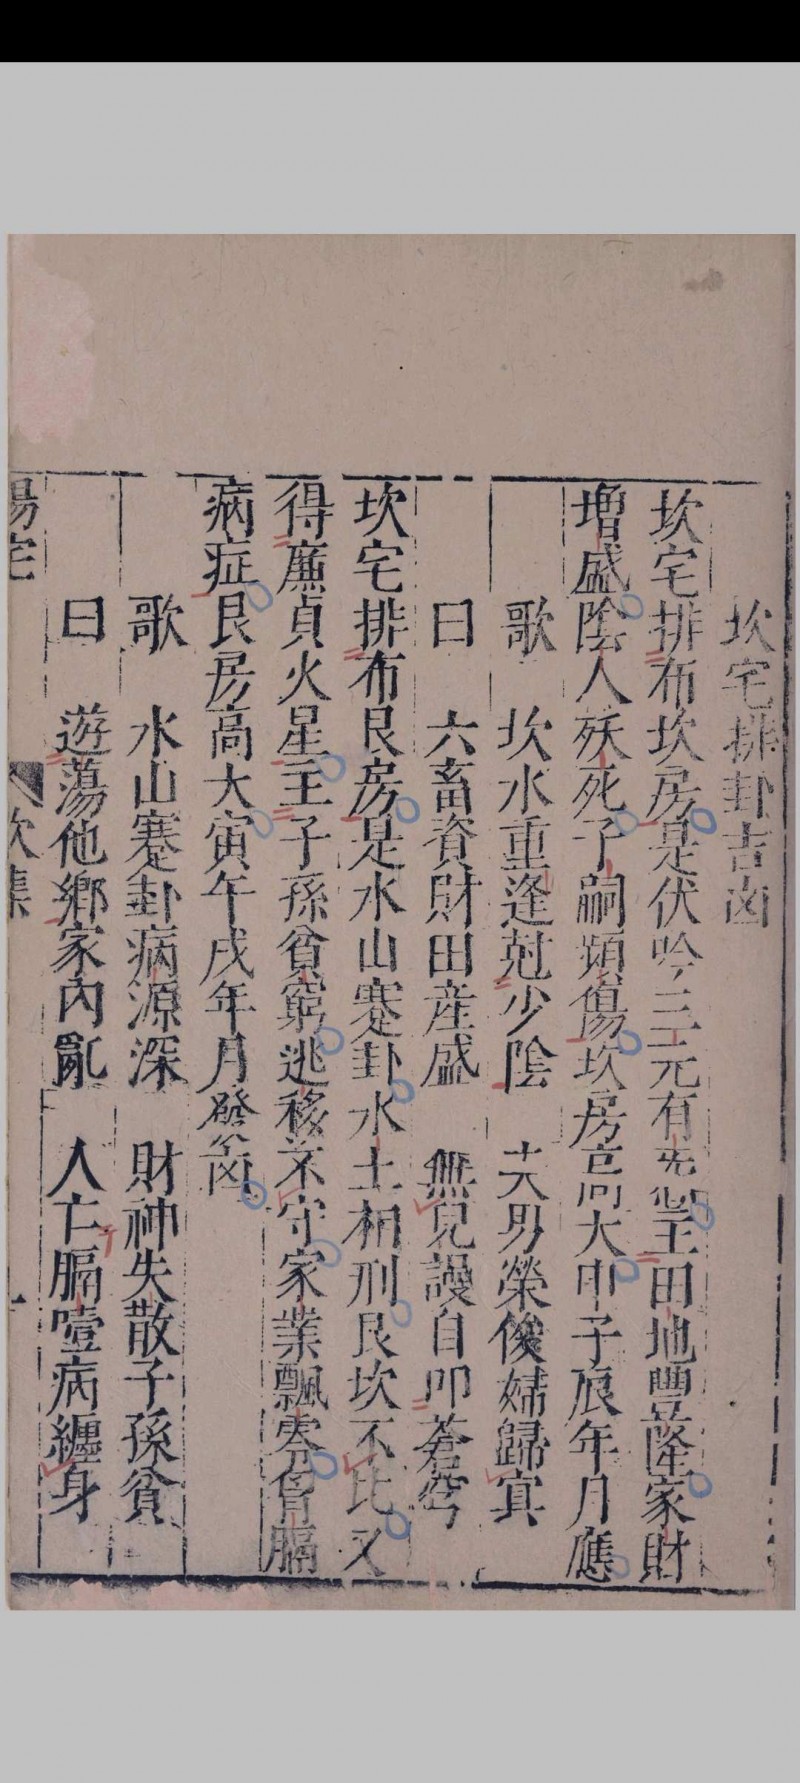 坎宅排卦吉凶
坎宅排布坎房是伏吟三元有 主田地豐隆家財
增盛陰人殀死子嗣頻傷坎房高大申子辰年月應
歌 坎水重逢尅少陰 夫男榮俊婦歸寘
曰 六畜資財田產盛 無兒謾自叩蒼穹
坎宅排布艮房是水山蹇卦水土相刑艮坎不比又
得廉貞火星主子孫貧窮逃移不守家業飄零 膈
病症艮房高大寅午戌年月發凶
歌 水山蹇卦病源深 財神失散子孫貧
曰 遊蕩他鄉家內亂 人亡膈噎病纏身
陽宅 坎集